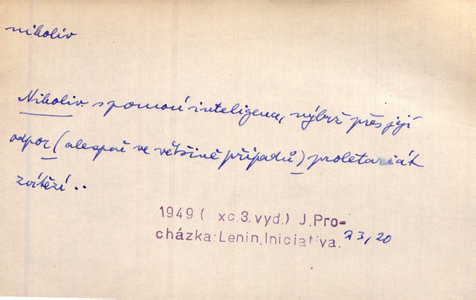 nikoliv
Nikoliv s pomocí inteligence, nýbrž přes její
odpor (alespoň ve většině případů) proletariát
zvítězí..
1949 ( xc 3.vyd.) J.Pro-
cházka:Lenin,Iniciativa. 23/20